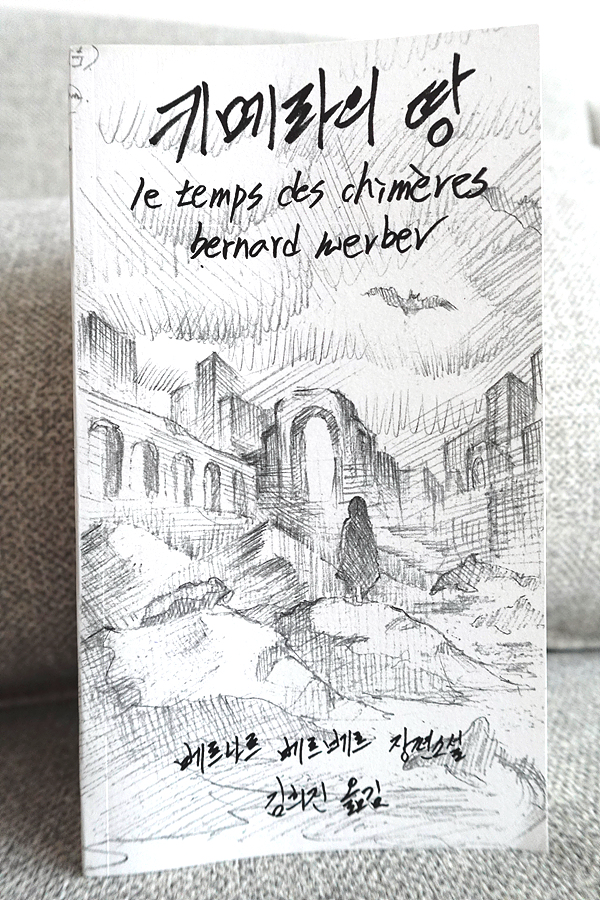 키메라의 땅
le temps des chimères
bernard werber
베르나르 베르베르 장편소설
김희진 옮김